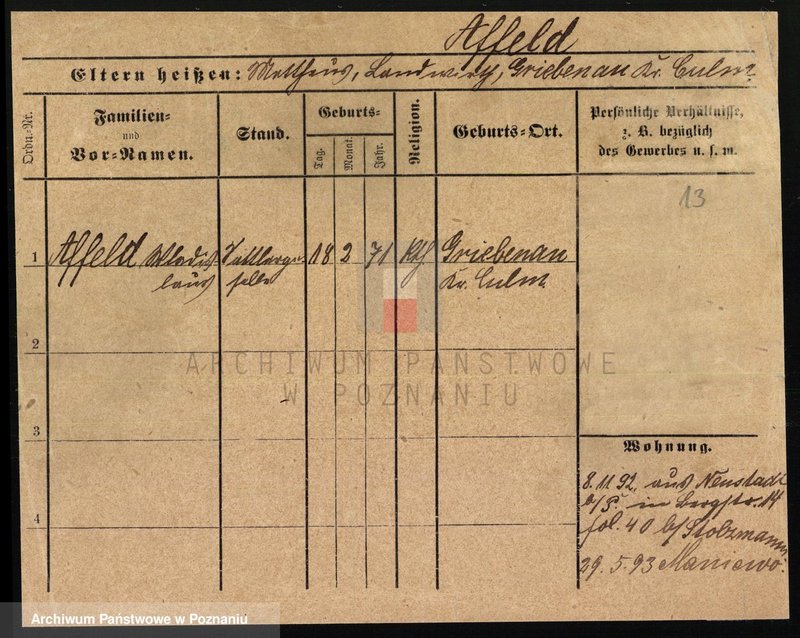 Affeld
Eltern heißen: Mattheus, Landwirth, Griebenau Kr. Culm
Ordn.-Nr.
Familien- und Vor-Namen.
Stand.
Geburts-
Tag.
Monat.
Jahr.
Religion.
Geburts-Ort.
Persönliche Verhältnisse, z. B. bezüglich des Gewerbes u. s. w.
13
1 Affeld Wladis- Sattlerge- 18 2 71 kth Griebenau
laus selle Kr. Culm
2
ARCHIWUM PAŃSTWOWE
W POZNANIU
3
Wohnung.
8.11.92. aus Neustadt
b/P. in Bergstr. 14
fol. 40 b/ Stolzmann
4
29.5.93 Maniewo.
Archiwum Państwowe w Poznaniu